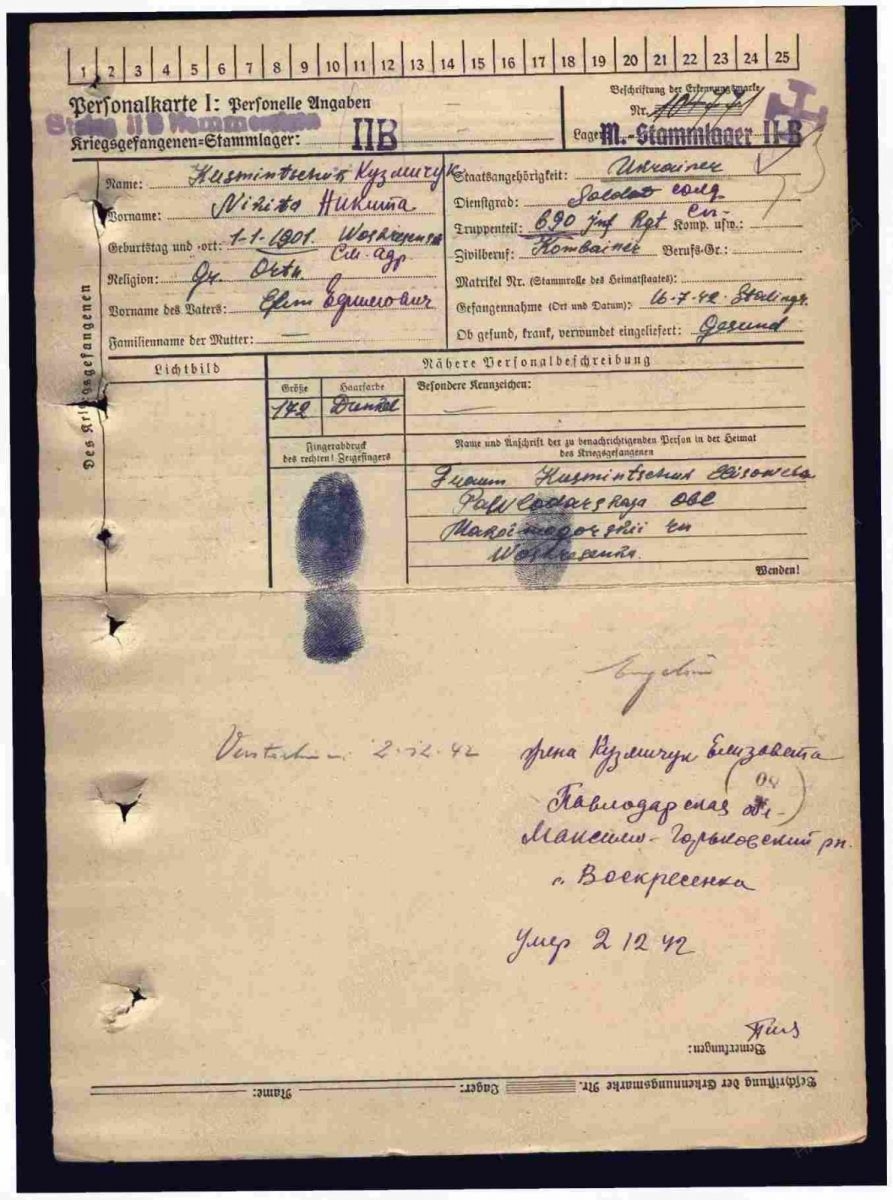 1 2 3 4 5 6 7 8 9 10 11 12 13 14 15 16 17 18 19 20 21 22 23 24 25
Personalkarte I: Personelle Angaben
Kriegsgefangenen=Stammlager: II B
Beschriftung der Erkennungsmarke
Nr.
Lager: M.-Stammlager II-B
Des Kriegsgefangenen
Name: Kusmintschuk Кузмичук
Vorname: Nikita Никита
Geburtstag und =ort: 1-1-1901. Woskresenka
См. адр
Religion: Gr. Orth.
Vorname des Vaters: Efim Ефимович
Familienname der Mutter: —
Staatsangehörigkeit: Ukrainer
Dienstgrad: Soldat солд
Truppenteil: 690 Inf Rgt Komp. usw.:
Zivilberuf: Kombainer Berufs=Gr.:
Matrikel Nr. (Stammrolle des Heimatstaates):
Gefangennahme (Ort und Datum): 16-7-42 Stalingr.
Ob gesund, krank, verwundet eingeliefert: Gesund
Lichtbild
Nähere Personalbeschreibung
Größe Haarfarbe Besondere Kennzeichen:
172 Dunkel —
Fingerabdruck
des rechten! Zeigefingers
Name und Anschrift der zu benachrichtigenden Person in der Heimat
des Kriegsgefangenen
Kusmintschuk
Pawlodarskaja
Woskresenka.
Wenden!
2.12.42
жена Кузмичук Елизавета
Павлодарская обл-
Максимо-Горьковский рн.
с. Воскресенка
Умер 2 12 42
Bemerkungen:
Beschriftung der Erkennungsmarke Nr. Lager: Name: